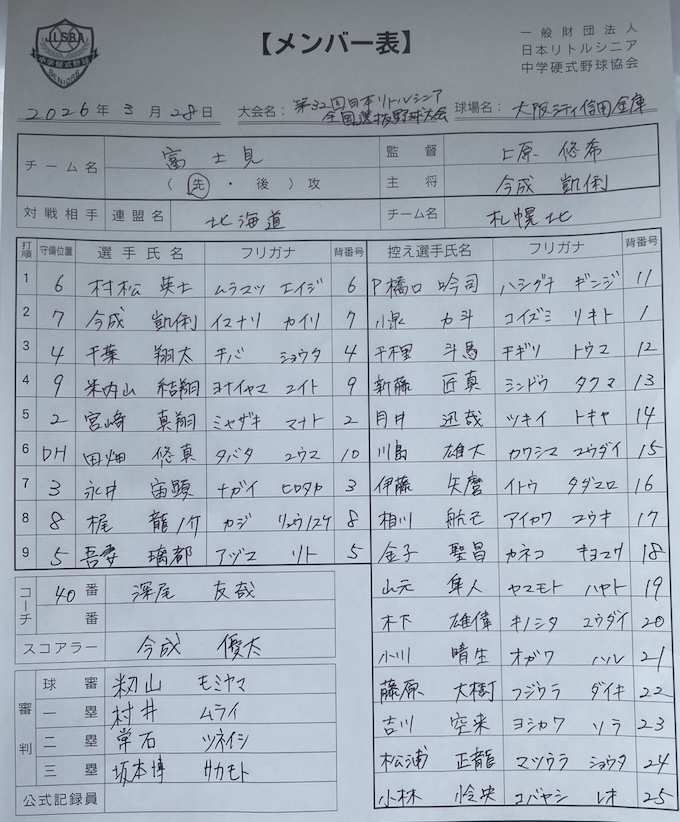 JLSBA
中学硬式野球
SENIORS
【メンバー表】
一般財団法人
日本リトルシニア
中学硬式野球協会
2026年 3月 28日 大会名: 第32回日本リトルシニア 全国選抜野球大会 球場名: 大阪シティ信用金庫
チーム名 富士見 監督 上原 悠希
(先・後)攻 主将 今成 凱俐
対戦相手 連盟名 北海道 チーム名 札幌北
打順 守備位置 選手氏名 フリガナ 背番号 控え選手氏名 フリガナ 背番号
1 6 村松 英士 ムラマツ エイジ 6 P橋口 吟司 ハシグチ ギンジ 11
2 7 今成 凱俐 イマナリ カイリ 7 小泉 力斗 コイズミ リキト 1
3 4 千葉 翔太 チバ ショウタ 4 千桎 斗馬 チギリ トウマ 12
4 9 米内山 結翔 ヨナイヤマ ユイト 9 新藤 匠真 シンドウ タクマ 13
5 2 宮崎 真翔 ミヤザキ マナト 2 月井 迅哉 ツキイ トキヤ 14
6 DH 田畑 悠真 タバタ ユウマ 10 川島 雄大 カワシマ ユウダイ 15
7 3 永井 宙顕 ナガイ ヒロタカ 3 伊藤 矢磨 イトウ タダマロ 16
8 8 梶 龍ノ介 カジ リュウノスケ 8 相川 航己 アイカワ コウキ 17
9 5 吾妻 璃都 アヅマ リト 5 金子 聖昌 カネコ キヨマサ 18
コーチ 40番 深尾 友哉 山元 隼人 ヤマモト ハヤト 19
番 木下 雄偉 キノシタ ユウダイ 20
スコアラー 今成 優太 小川 晴生 オガワ ハル 21
審判 球審 籾山 モミヤマ 藤原 大樹 フジワラ ダイキ 22
一塁 村井 ムライ 吉川 空来 ヨシカワ ソラ 23
二塁 常石 ツネイシ 松浦 正龍 マツウラ ショウタ 24
三塁 坂本博 サカモト 小林 怜央 コバヤシ レオ 25
公式記録員